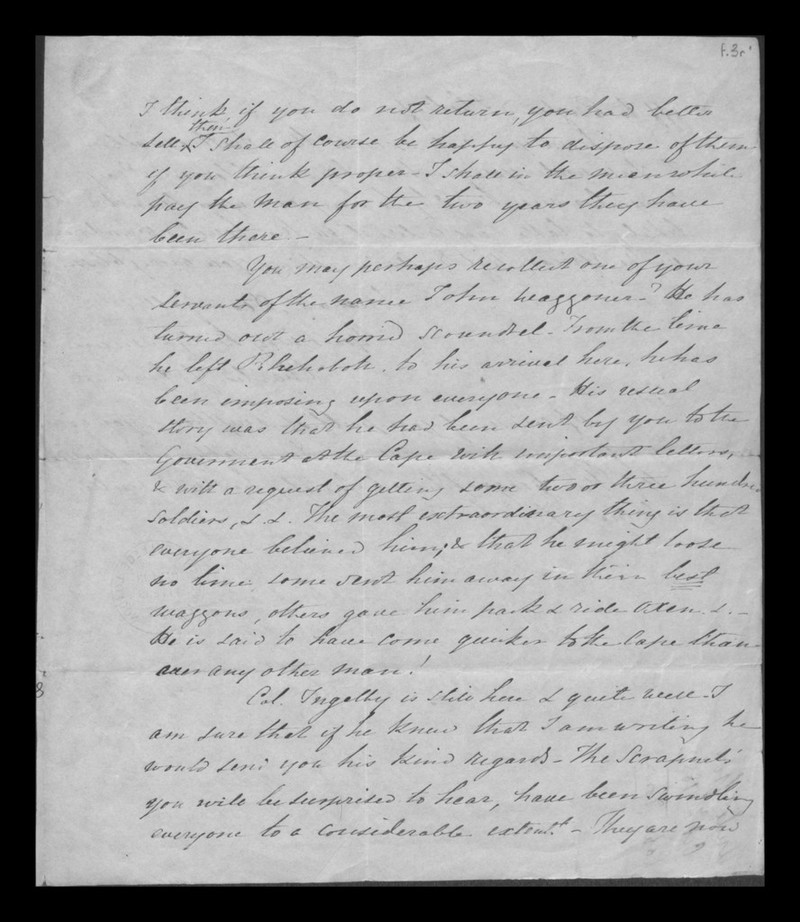 f.3r
I think, if you do not return, you had better
sell them I shall of course be happy to dispose of them
if you think proper - I shall in the meanwhile
pay the man for the two years they have
been there. -
You may perhaps recollect one of your
servants of the name John Waggoner - ? He has
turned out a horrid scoundrel - From the time
he left Rhehoboth, to his arrival here, he has
been imposing upon everyone - His usual
story was that he had been sent by you to the
Goverment at the Cape with important letters,
& with a request of getting some two or three hundred
soldiers, &. &. The most extraordinary thing is that
everyone believed him; & that he might loose
no time some sent him away in their best
waggons, others gave him pack & ride oxen &. -
He is said to have come quicker to the Cape than
ever any other man!
Col. Ingelby is still here & quite well - I
am sure that if he knew that I am writing he
would send you his kind regards - The Scrapnels
you will be surprised to hear, have been swindling
everyone to a considerable extent. - They are now